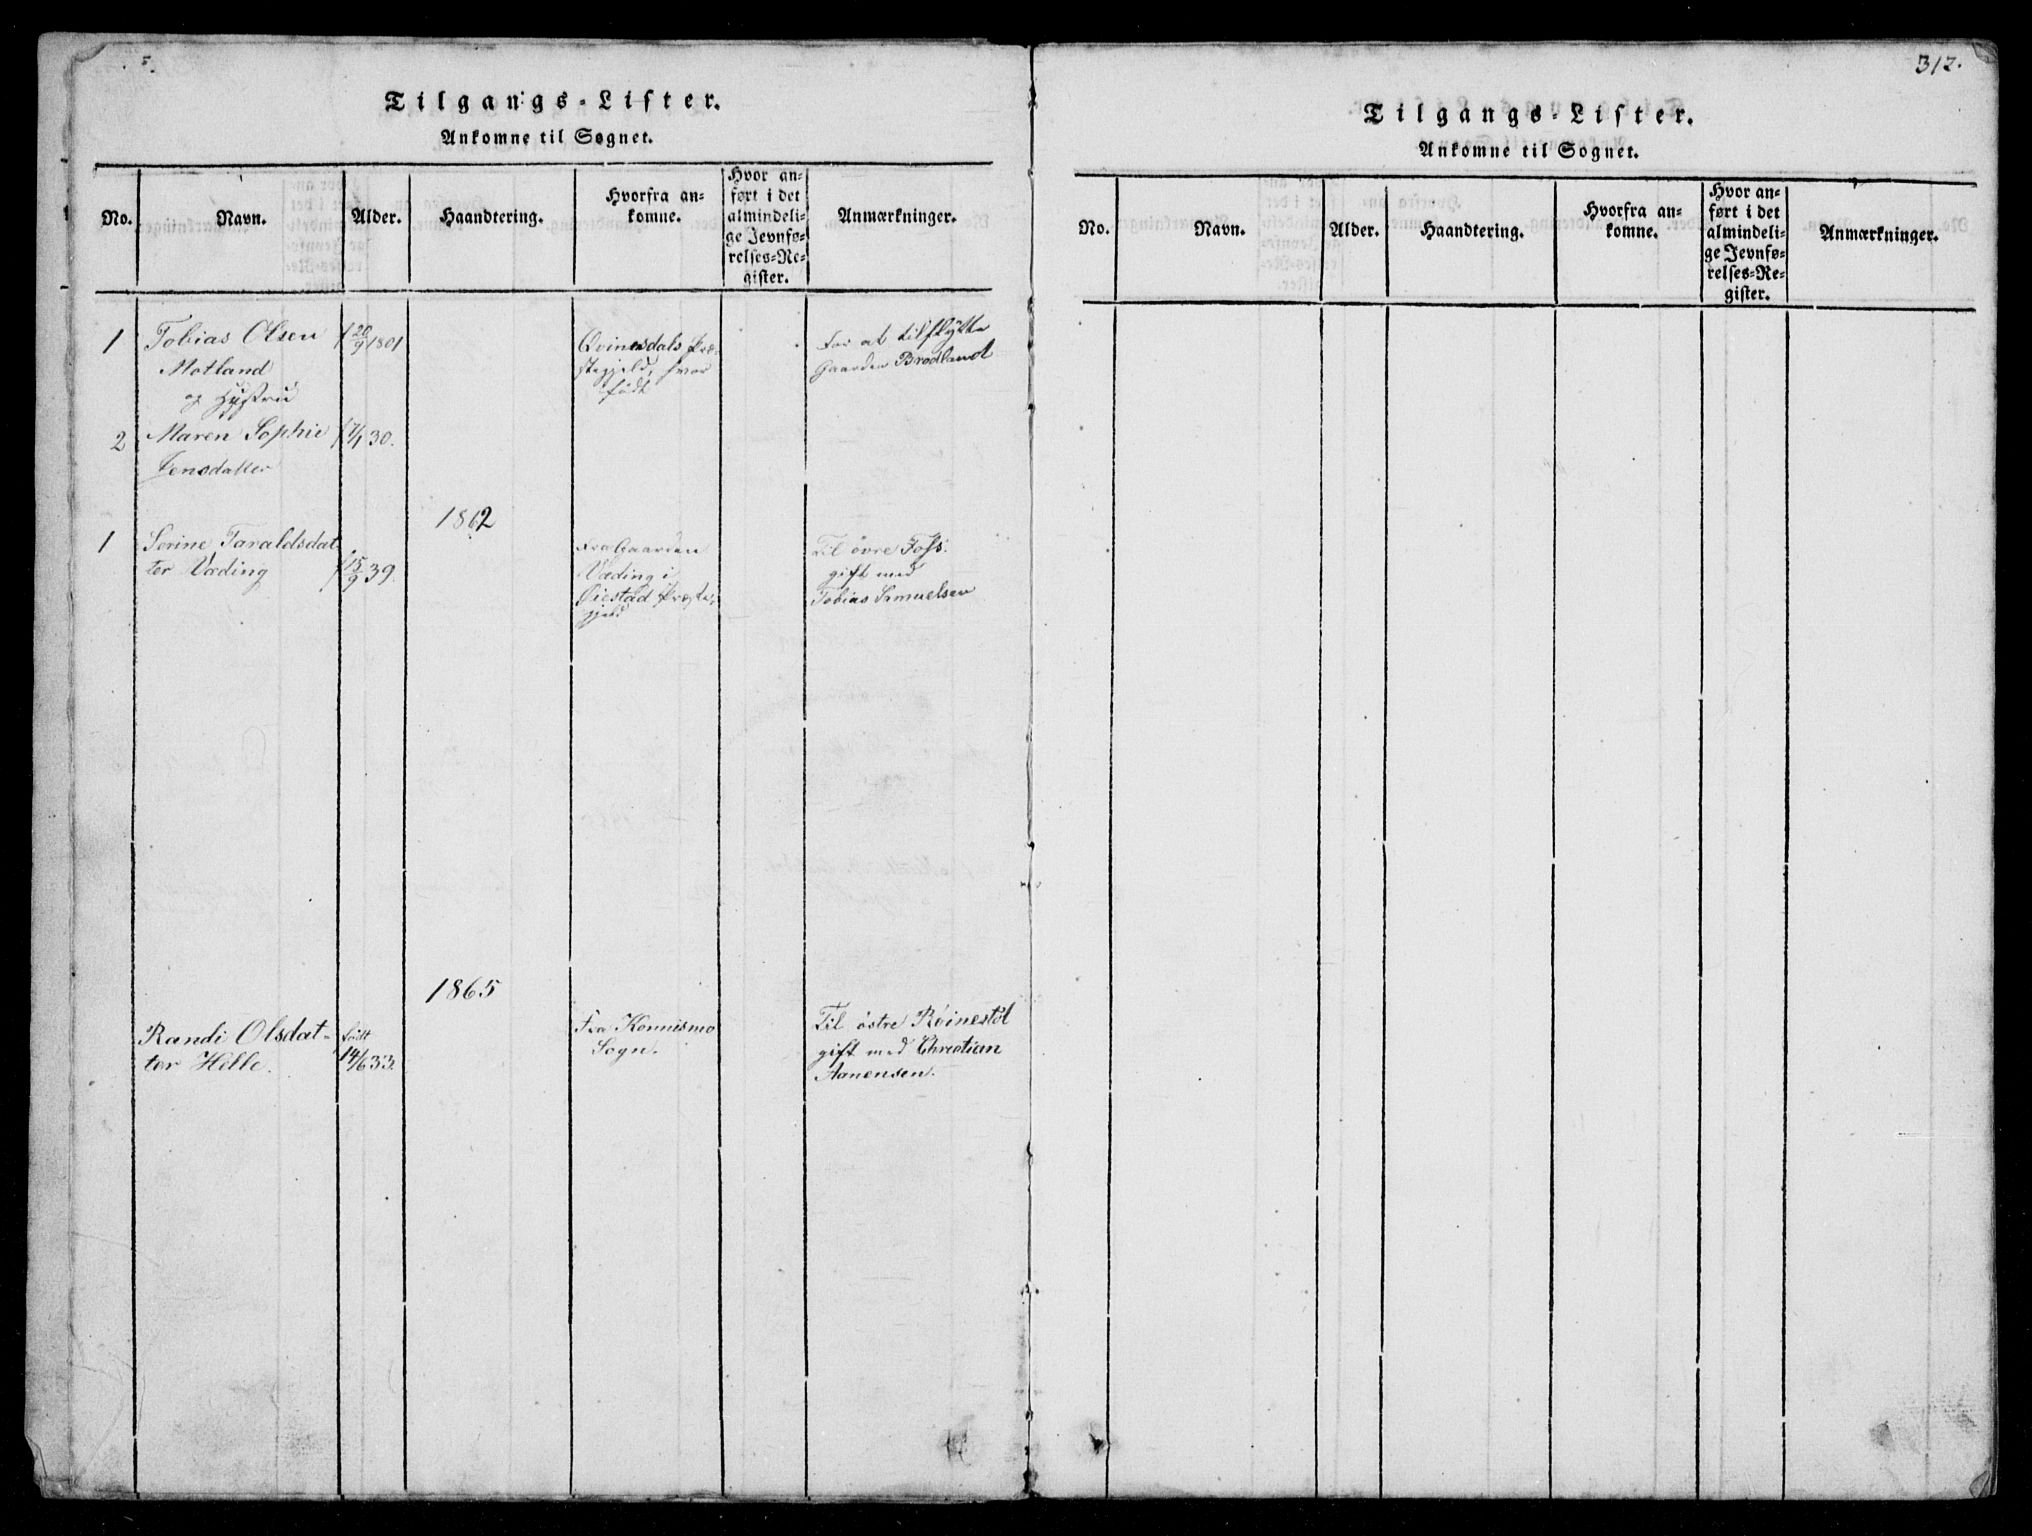 Tilgangs-Lister.
Ankomne til Sognet.
No.
Navn.
Alder.
Haandtering.
Hvorfra an-
komne.
Hvor an-
ført i det
almindeli-
ge Jevnfø-
relses-Re-
gister.
Anmærkninger.
1
Tobias Olsen
Motland
og Hustru
f 20/9 1801
Qvinesdals Præ-
stegjeld, hvor
født
For at tilflytte
Gaarden Brødland
2
Maren Sophie
Jensdatter
f 7/1 30.
1862
1
Serine Taraldsdat
ter Væding
f 15/9 39.
Fra Gaarden
Væding i
Øiestad Præste-
gjeld
Til øvre Foss.
gift med
Tobias Samuelsen
1865
Randi Olsdat-
ter Helle.
født
14/6 33.
Fra Konnismo
Sogn.
Til østre Røinestøl
gift med Christian
Aanensen.
312.
Tilgangs-Lister.
Ankomne til Sognet.
No.
Navn.
Alder.
Haandtering.
Hvorfra an-
komne.
Hvor an-
ført i det
almindeli-
ge Jevnfø-
relses-Re-
gister.
Anmærkninger.